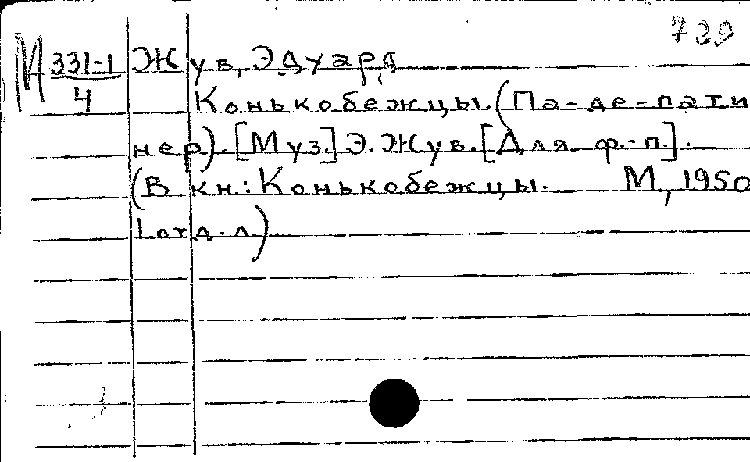 739
М 331-1 Жув, Эдуард
4 Конькобежцы. (Па-де-пати
нер). [Муз.] Э. Жув. [Для ф.-п.].
(В кн: Конькобежцы. М, 1950
1 отд. л)